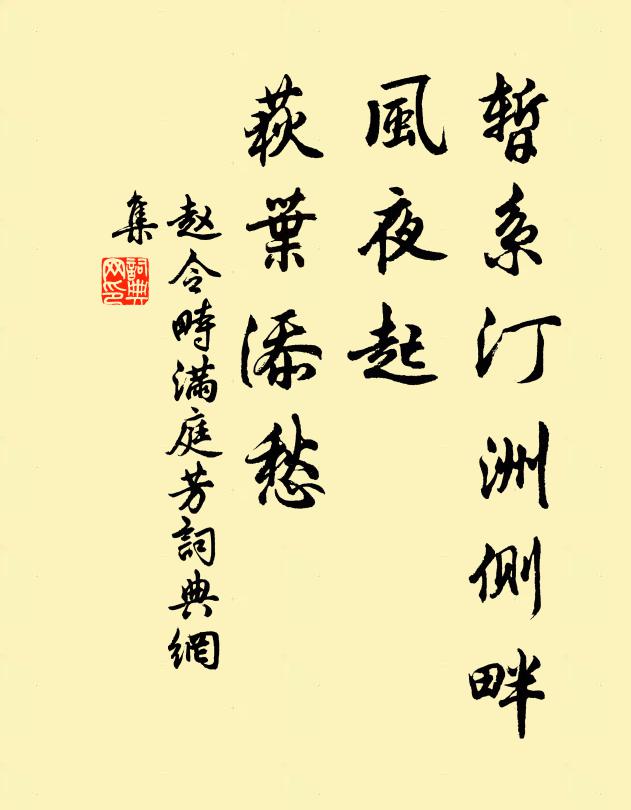 暫系汀洲側畔
風夜起
荻葉添愁
赵令畤滿庭芳詞典網
集
詞典
网印